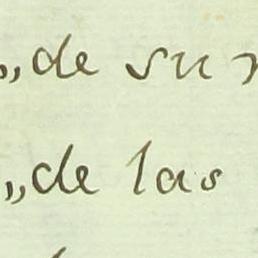 „de su
„de las